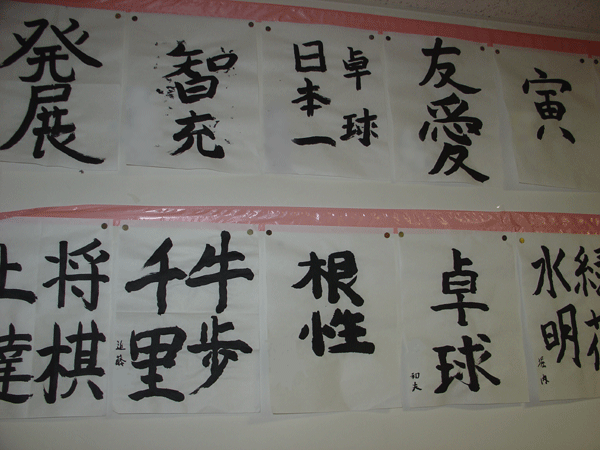 寅
友愛
卓球
日本一
智充
発展
緑花
水明
卓球
根性
牛歩
千里
近藤
将棋
上達